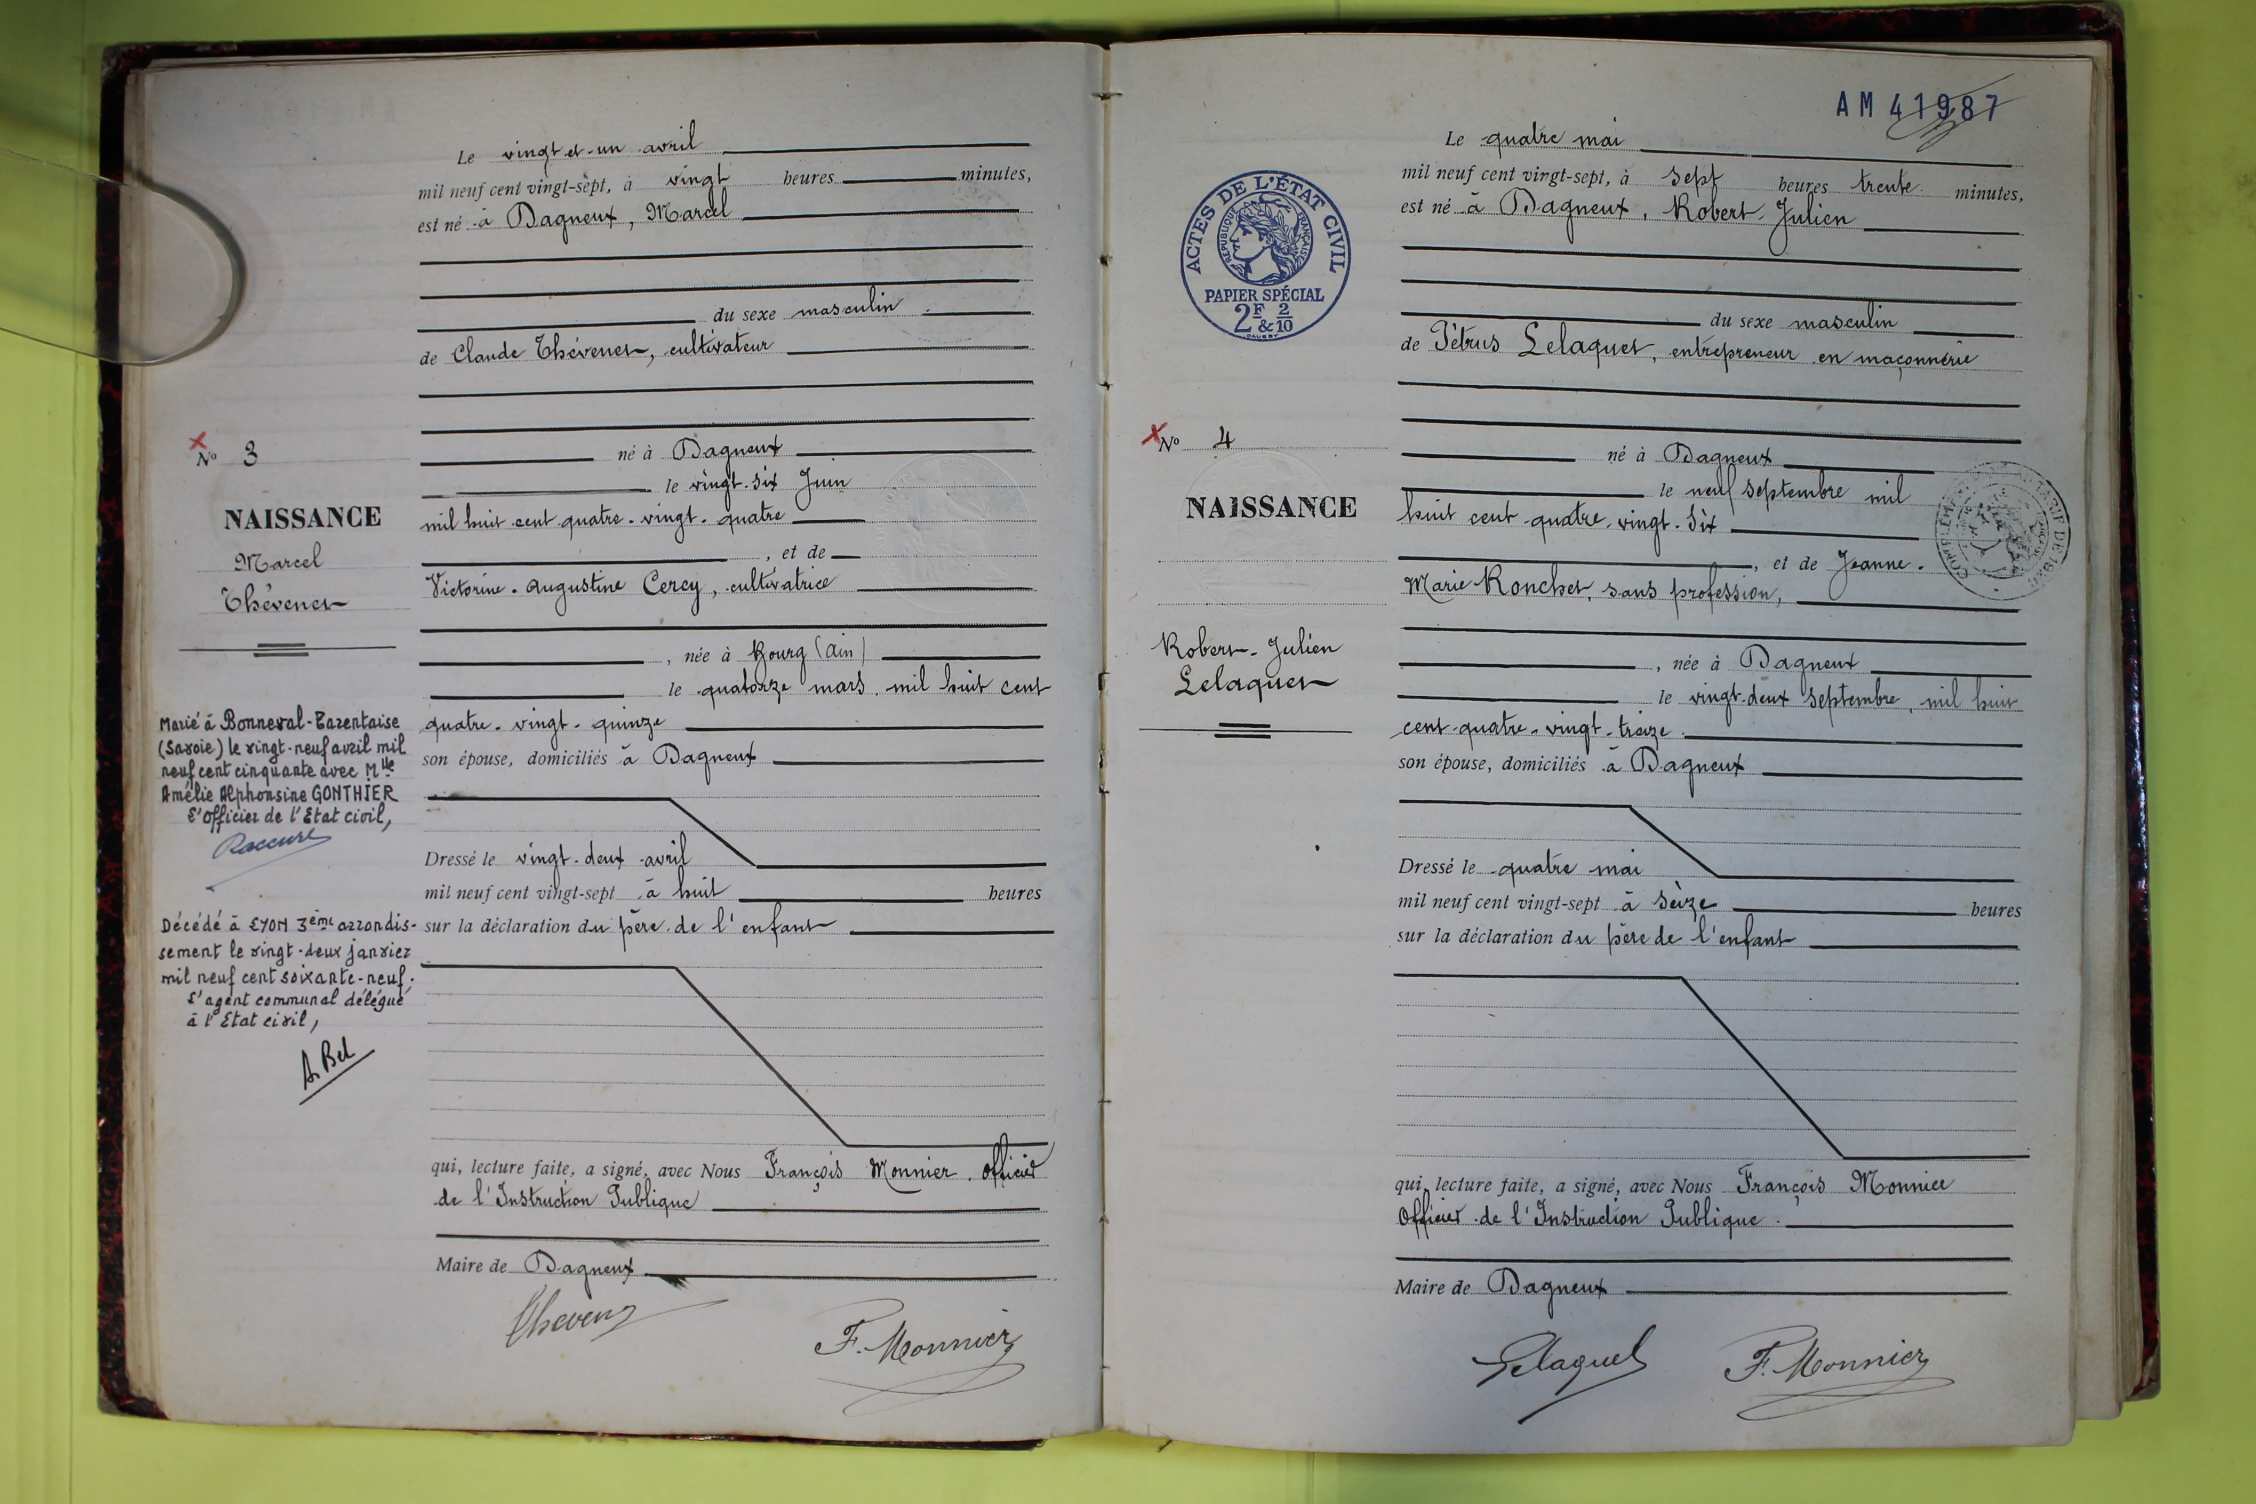 Le vingt et un avril
mil neuf cent vingt-sept, à vingt heures minutes,
est né à Dagneux, Marcel
du sexe masculin
de Claude Thévenet, cultivateur
né à Dagneux
le vingt-six Juin
mil huit cent quatre-vingt-quatre
, et de
Victorine-Augustine Cercy, cultivatrice
, née à Bourg (Ain)
le quatorze mars mil huit cent
quatre-vingt-quinze
son épouse, domiciliés à Dagneux
Dressé le vingt-deux avril
mil neuf cent vingt-sept à huit heures
sur la déclaration du père de l'enfant
qui, lecture faite, a signé, avec Nous François Monnier, Officier
de l'Instruction Publique
Maire de Dagneux
F. Monnier
No 3
NAISSANCE
Marcel
Thévenet
Marié à Bonneval-Tarentaise
(Savoie) le vingt-neuf avril mil
neuf cent cinquante avec Mlle
Amélie Alphonsine GONTHIER
L'officier de l'Etat civil,
Décédé à LYON 3ème arrondis-
sement le vingt-deux janvier
mil neuf cent soixante-neuf.
L'agent communal délégué
à l'Etat civil,
A. Bel
AM 41987
Le quatre mai
mil neuf cent vingt-sept, à sept heures trente minutes,
est né à Dagneux, Robert-Julien
du sexe masculin
de Pétrus Lelaquet, entrepreneur en maçonnerie
né à Dagneux
le neuf septembre mil
huit cent quatre-vingt-six
, et de Jeanne-
Marie Ronchet, sans profession,
, née à Dagneux
le vingt-deux septembre, mil huit
cent quatre-vingt-treize
son épouse, domiciliés à Dagneux
Dressé le quatre mai
mil neuf cent vingt-sept à seize heures
sur la déclaration du père de l'enfant
qui, lecture faite, a signé, avec Nous François Monnier
Officier de l'Instruction Publique
Maire de Dagneux
Lelaquet
F. Monnier
ACTES DE L'ÉTAT CIVIL
RÉPUBLIQUE FRANÇAISE
PAPIER SPÉCIAL
2F & 2/10
No 4
NAISSANCE
Robert-Julien
Lelaquet